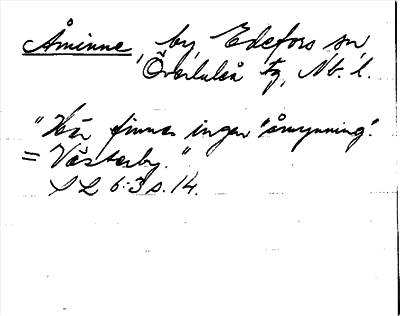 Åminne, by, Edefors sn,
Överluleå tg, Nb. l.
"Här finnes ingen "åmynning".
= Västerby."
SL 6:3 s. 14.